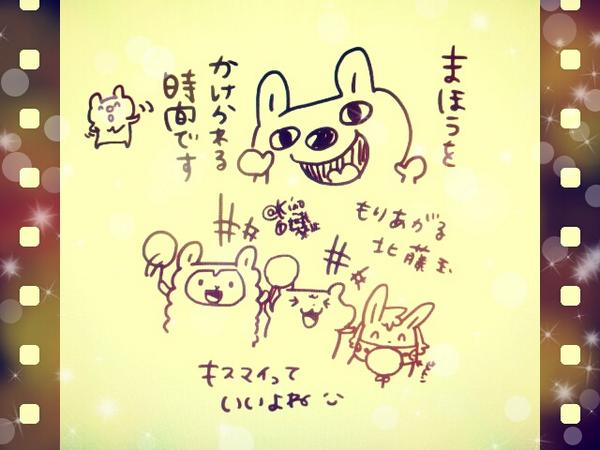 まほうを
かけかれる
時間です
もりあがる
北藤玉
キスマイって
いいよね